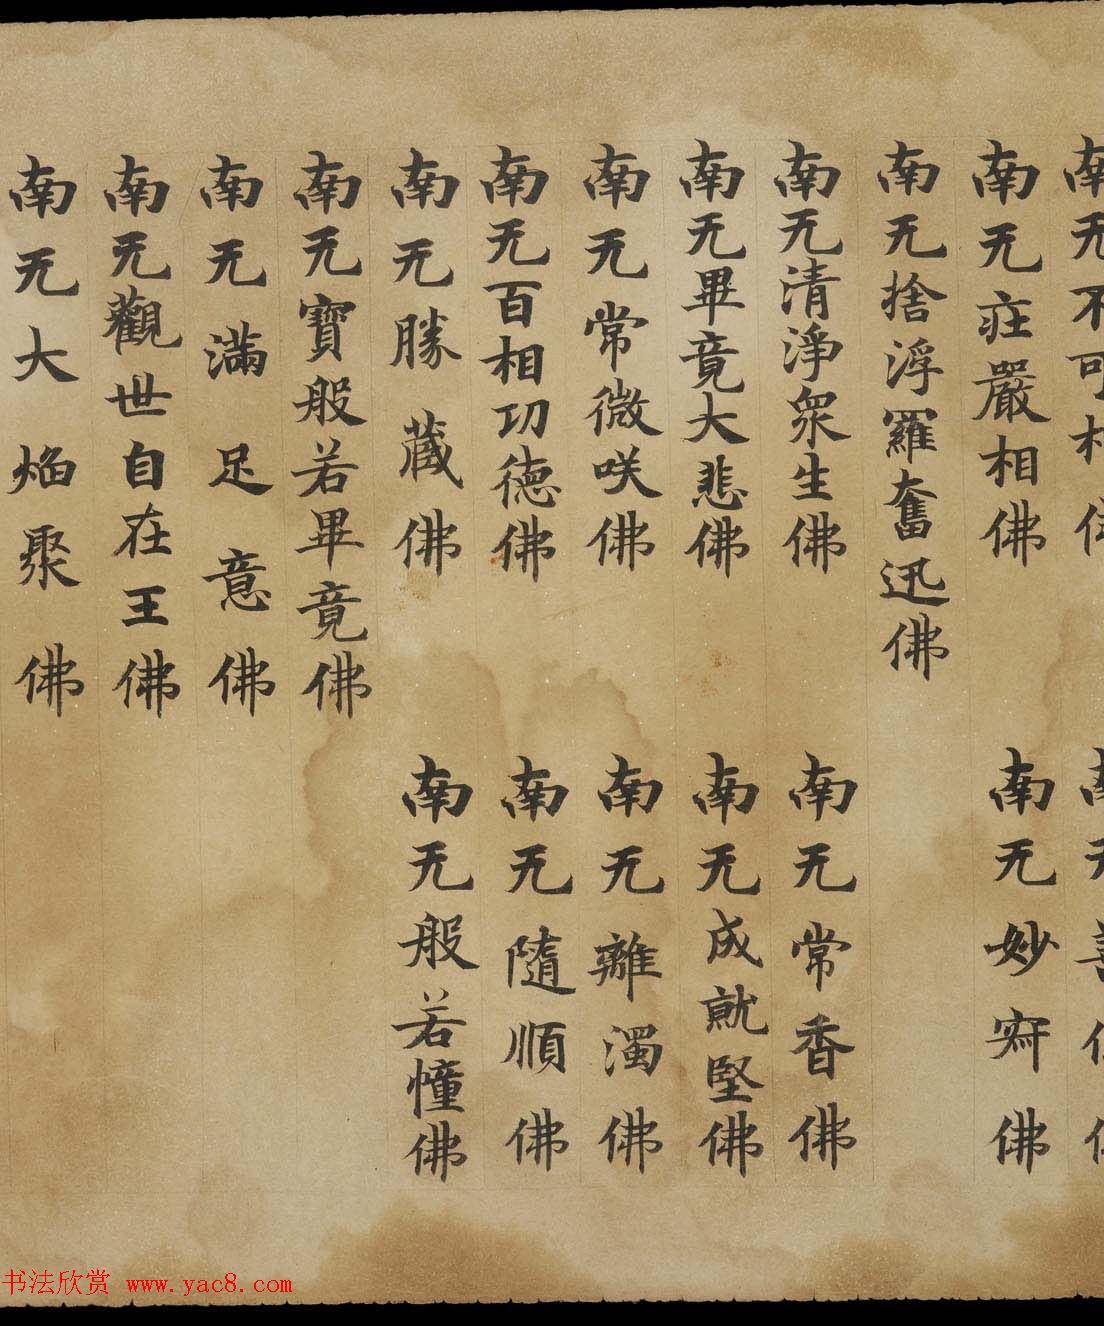 南无不可相佛 南无善住佛
南无庄嚴相佛 南无妙寂佛
南无捨浮羅奮迅佛
南无清淨衆生佛 南无常香佛
南无畢竟大悲佛 南无成就堅佛
南无常微咲佛 南无離濁佛
南无百相功德佛 南无隨順佛
南无勝藏佛 南无般若憧佛
南无寶般若畢竟佛
南无滿足意佛
南无觀世自在王佛
南无大焰聚佛
书法欣赏 www.yac8.com